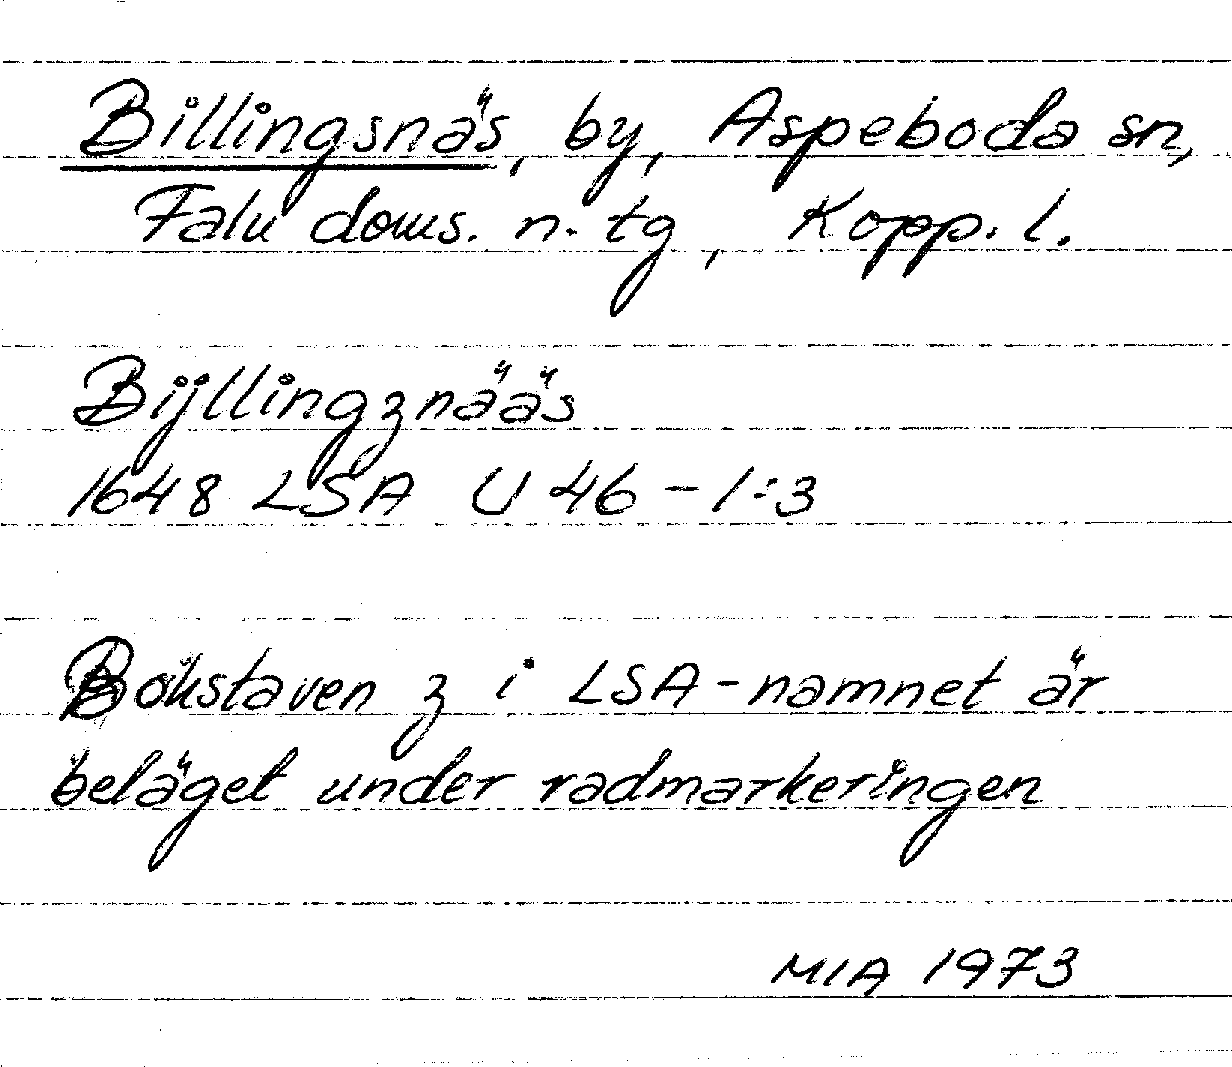 Billingsnäs, by, Aspeboda sn,
Falu doms. n. tg, Kopp. l.
Bijllingznääs
1648 LSA U 46-1:3
Bokstaven z i LSA-namnet är
beläget under radmarkeringen
MIA 1973